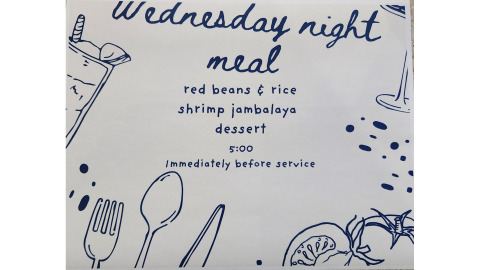 Wednesday night
meal
red beans & rice
shrimp jambalaya
dessert
5:00
Immediately before service